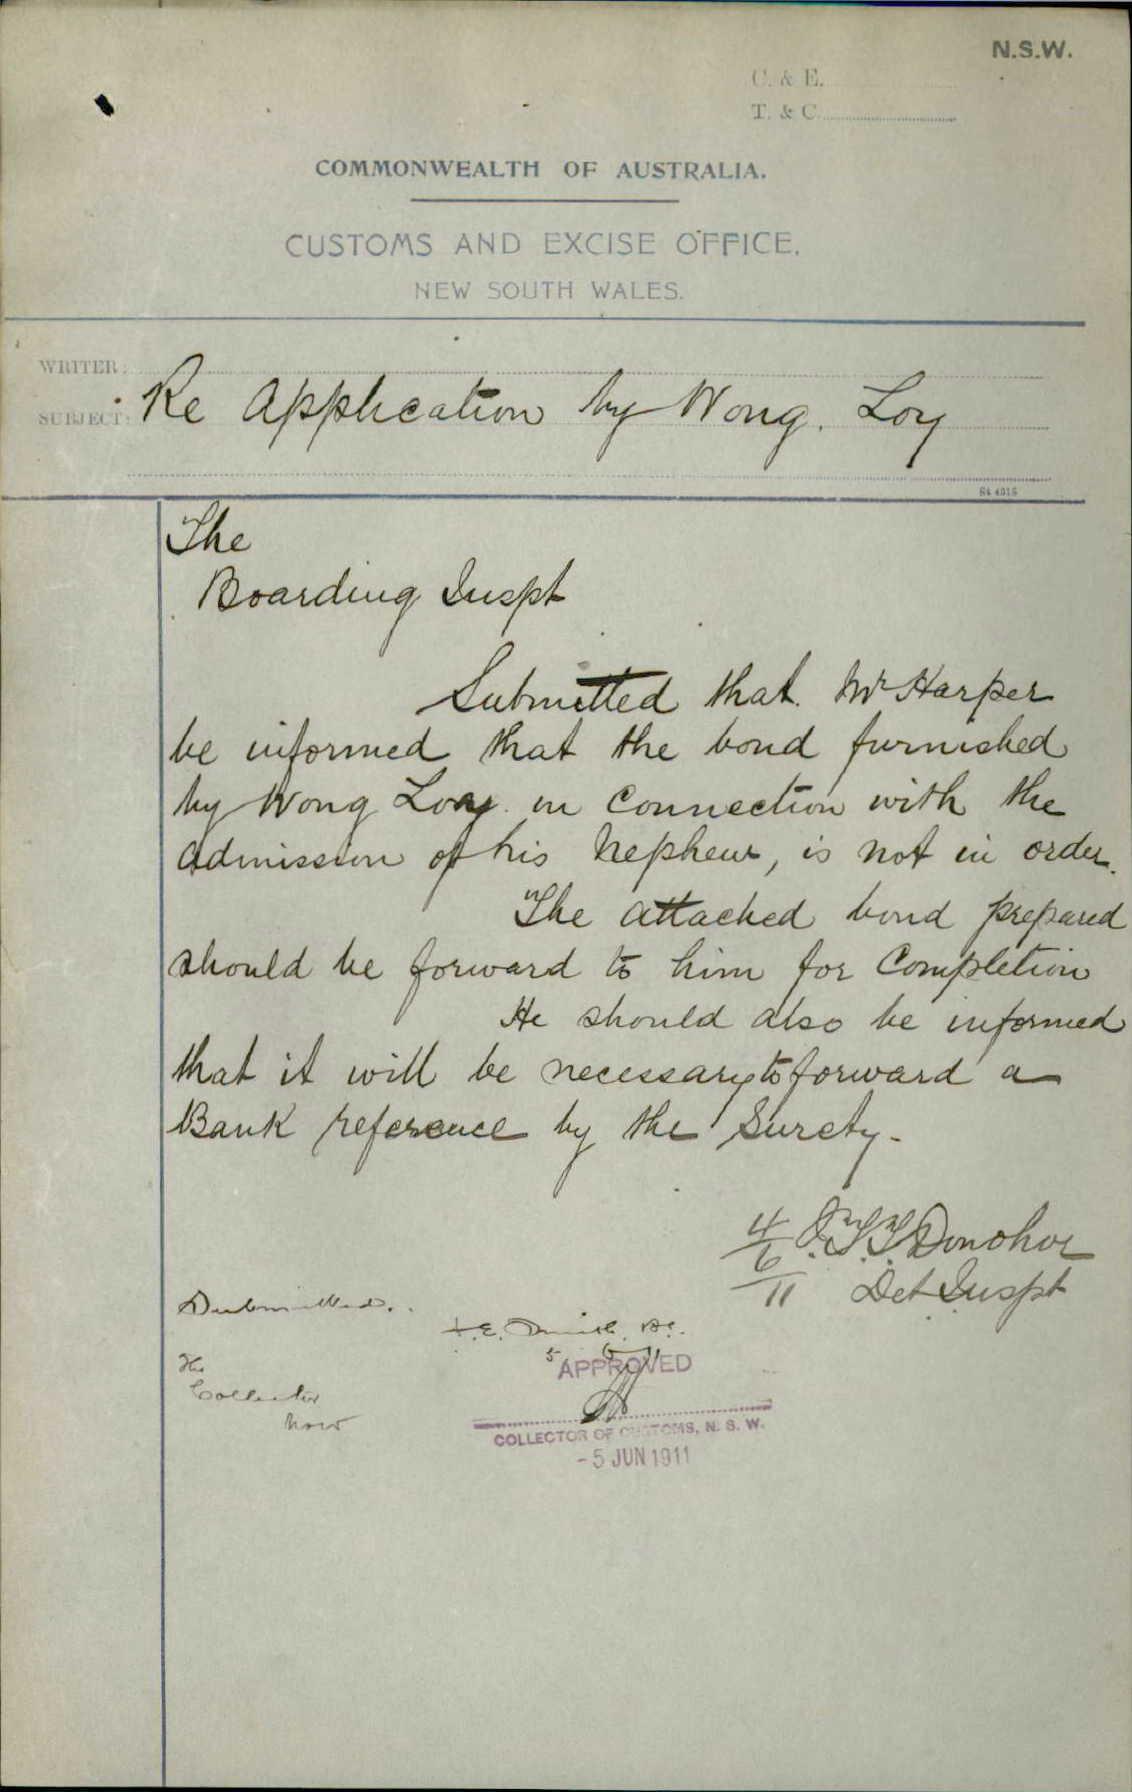 N.S.W.
C. & E.
T. & C.
COMMONWEALTH OF AUSTRALIA.
CUSTOMS AND EXCISE OFFICE,
NEW SOUTH WALES.
WRITER:
SUBJECT: Re Application by Wong. Loy
The
Boarding Inspt
Submitted that Mr Harper
be informed that the bond furnished
by Wong Loy in Connection with the
admission of his Nephew, is not in order.
The attached bond prepared
should be forward to him for Completion
He should also be informed
that it will be necessary to forward a
Bank reference by the Surety.
4/6/11 J.T.T. Donohoe
Det Inspt
Submitted.
5 6 11
The
Collector
NSW
APPROVED
COLLECTOR OF CUSTOMS, N. S. W.
-5 JUN 1911